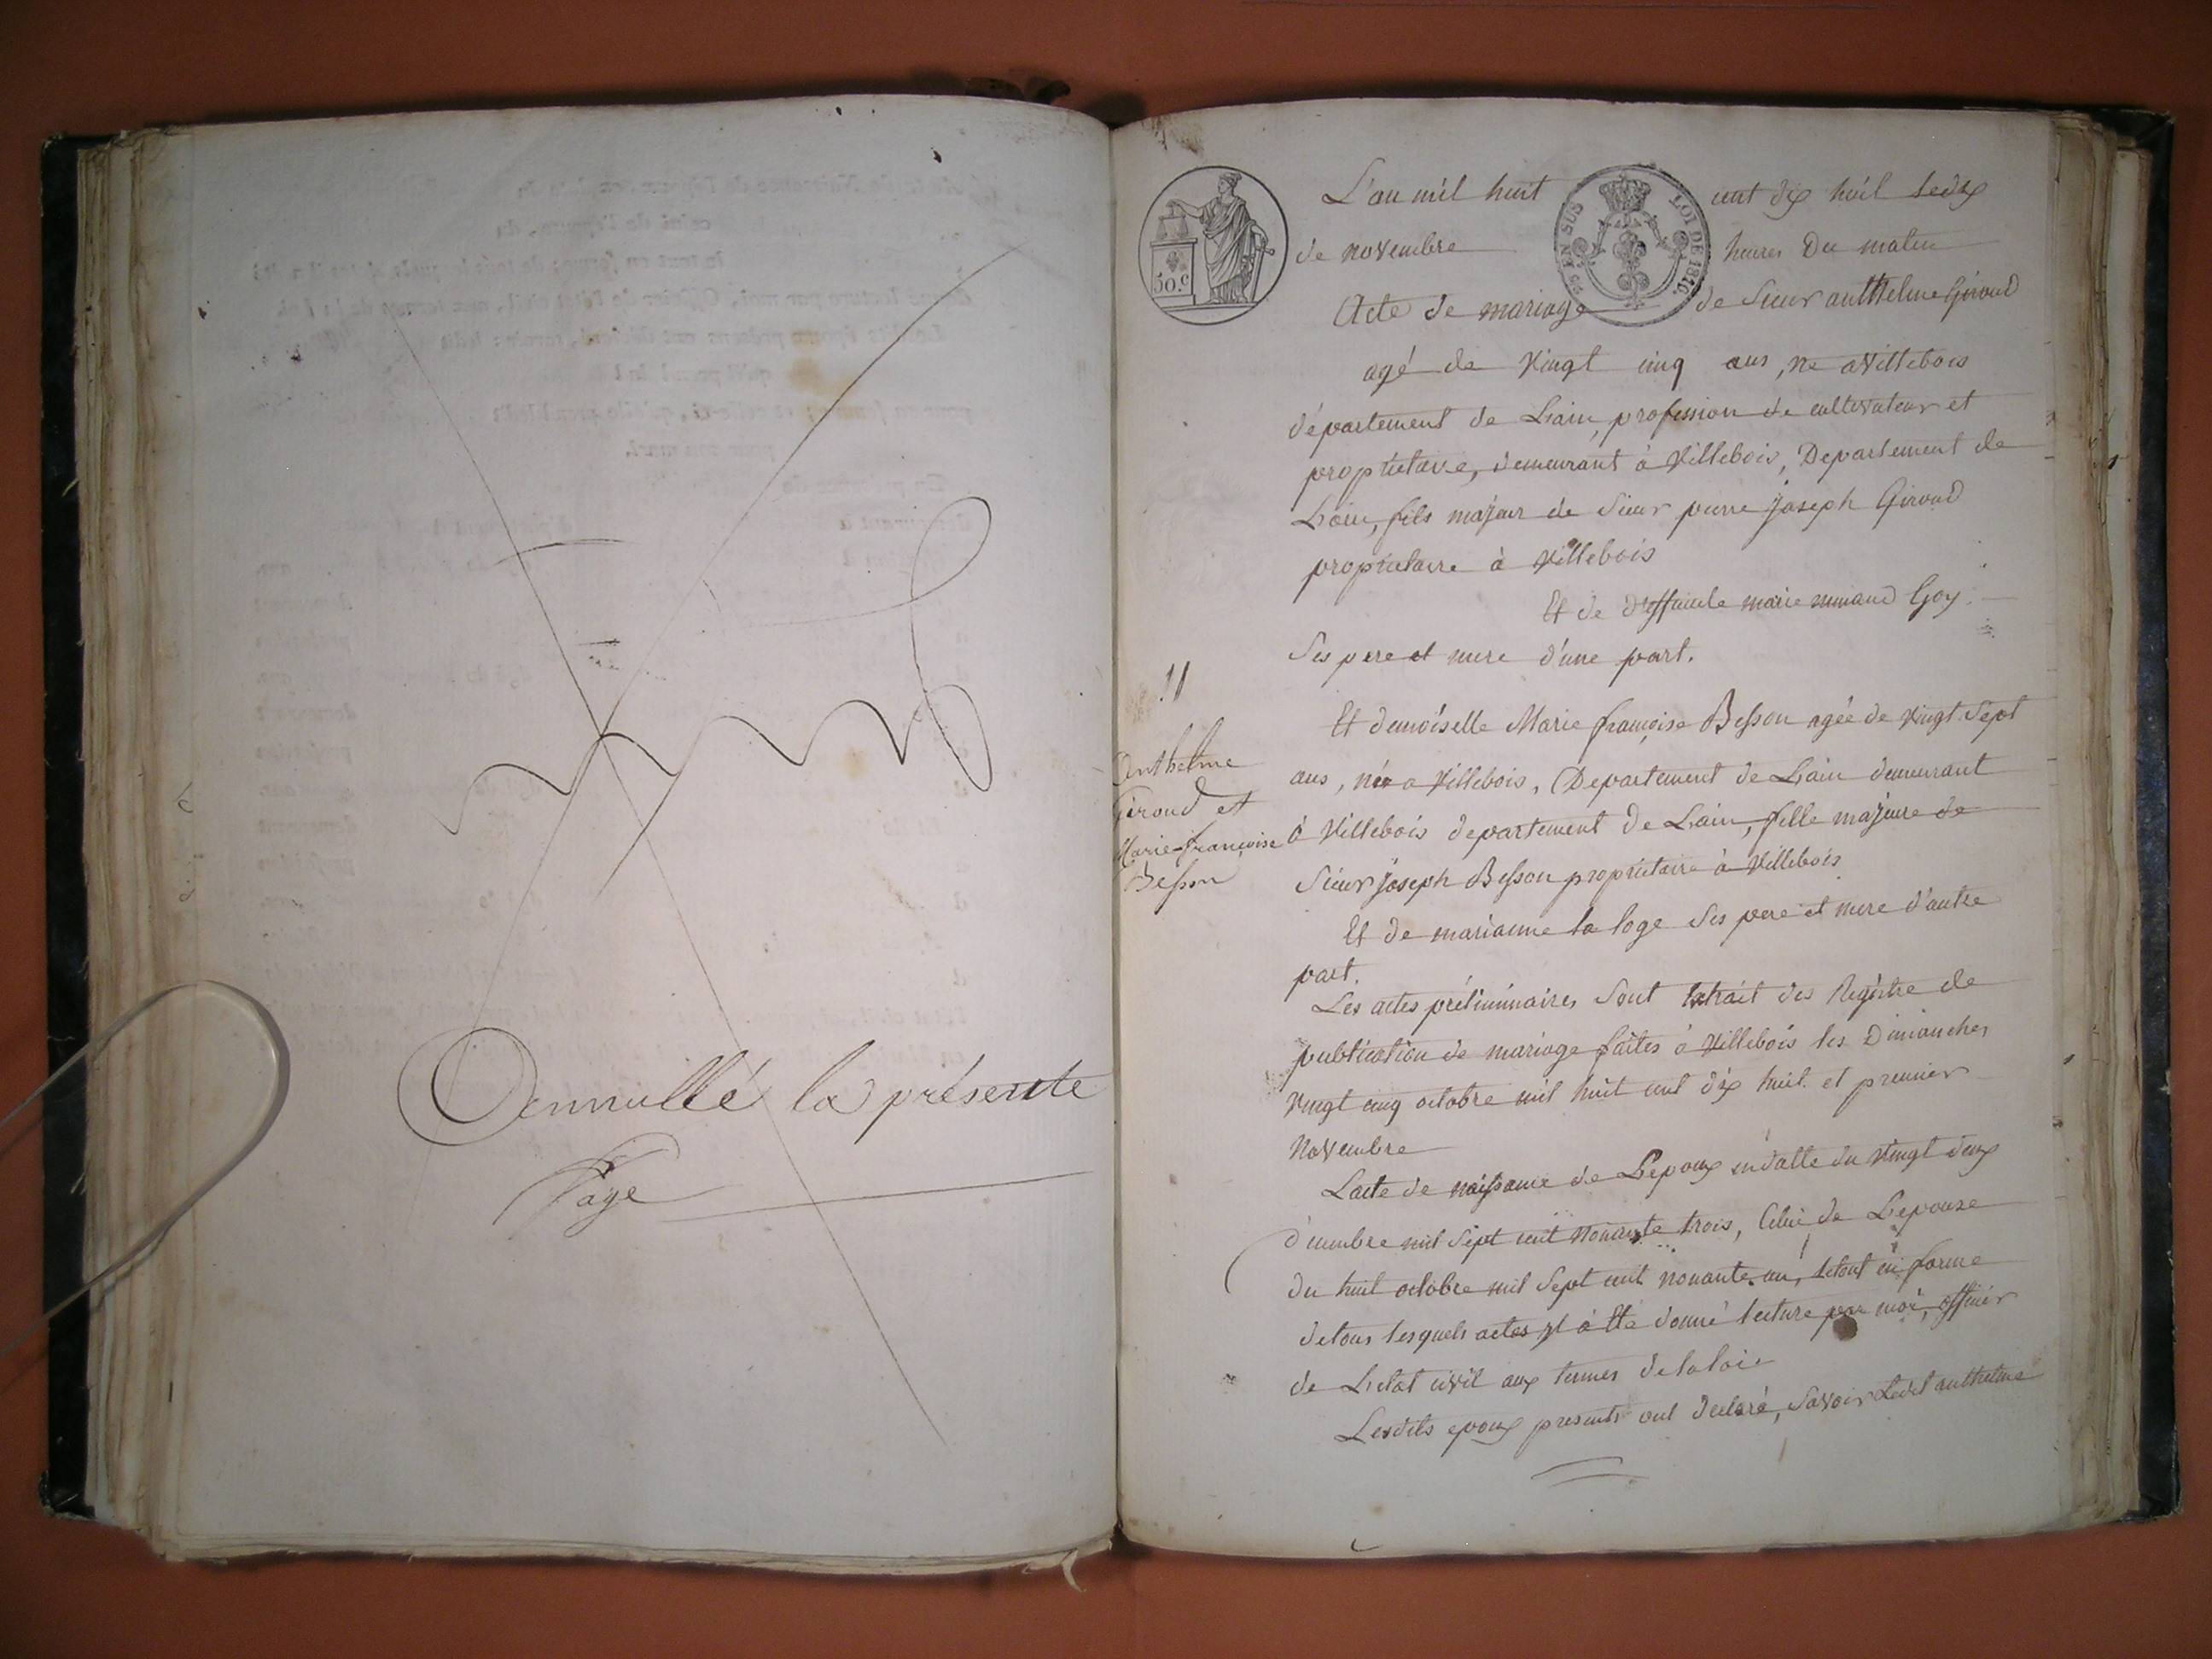 Annullé la présente
Page
50.C
EN SUS
LOI DE 1816.
L'an mil huit cent dix huit le dix
de novembre heures Du matin
Acte de mariage de Sieur anthelme Giroud
agé de Vingt cinq ans, ne a Villebois
département de Lain, profession de cultivateur et
propriétaire, demeurant à Villebois, Departement de
Lain, fils majeur de Sieur pierre joseph Giroud
propriétaire à Villebois
Et de marie Goy
Ses pere et mere d'une part.
11
Anthelme
Giroud et
Marie-françoise
Besson
Et demoiselle Marie françoise Besson agée de Vingt Sept
ans, née a Villebois, Departement de Lain demeurant
à Villebois departement de Lain, fille majeure de
Sieur joseph Besson propriétaire à Villebois
Et de marianne la loge Ses pere et mere d'autre
part.
Les actes préliminaires Sont Extrait des Registre de
publication de mariage faites à Villebois les Dimanches
Vingt cinq octobre mil huit cent dix huit et premier
Novembre
Lacte de naissance de Lepoux en datte du Vingt deux
décembre mil Sept cent Nonante trois, Celui de Lepouse
du huit octobre mil Sept cent nonante un, letout en forme
detous lesquels actes yl à été donné lecture par moi, officier
de Letat civil aux termes de la loie
Lesdits epoux presents ont declaré, Savoir Ledit anthelme